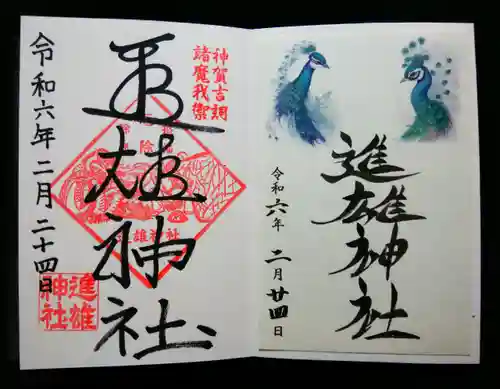 神賀吉詞
諸魔我禦
進雄神社
令和六年二月二十四日
進雄
神社
進雄神社
令和六年
二月廿四日